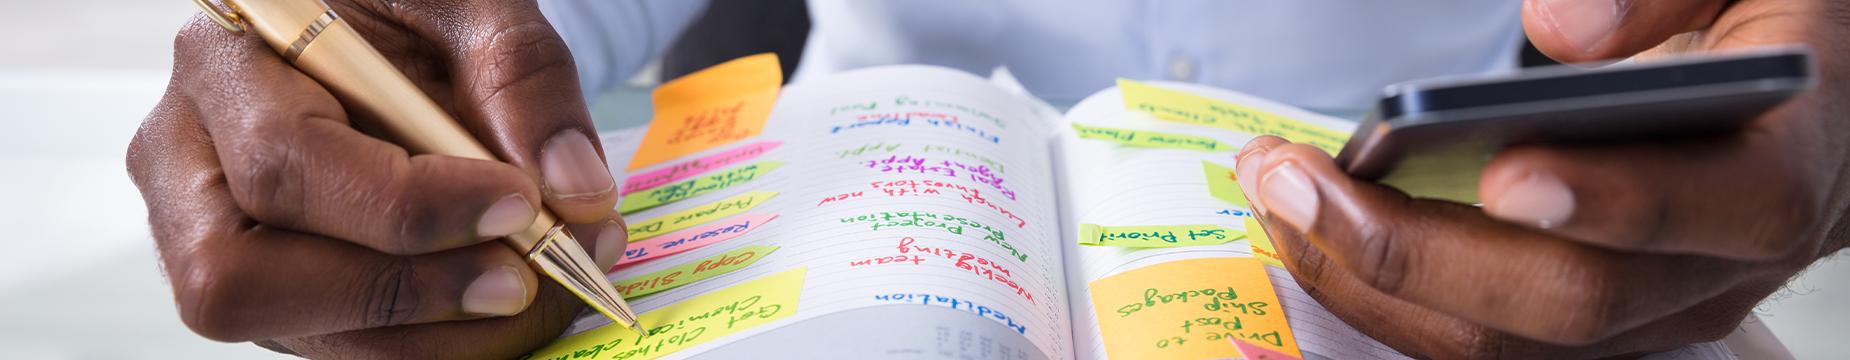 Drive to
Post
Ship
Packages
Set Priorit
Review Plans
Meditation
Weekly team
meeting
New Project
Presentation
Lunch with new
Investors
Real Estate
Agent Appt.
Dentist Appt.
Finish Report
Deadline
Swimming Pool
Get Clothes
Chemical clean
Copy Slides
Reserve Ta
Prepare
Follow up
with Dev